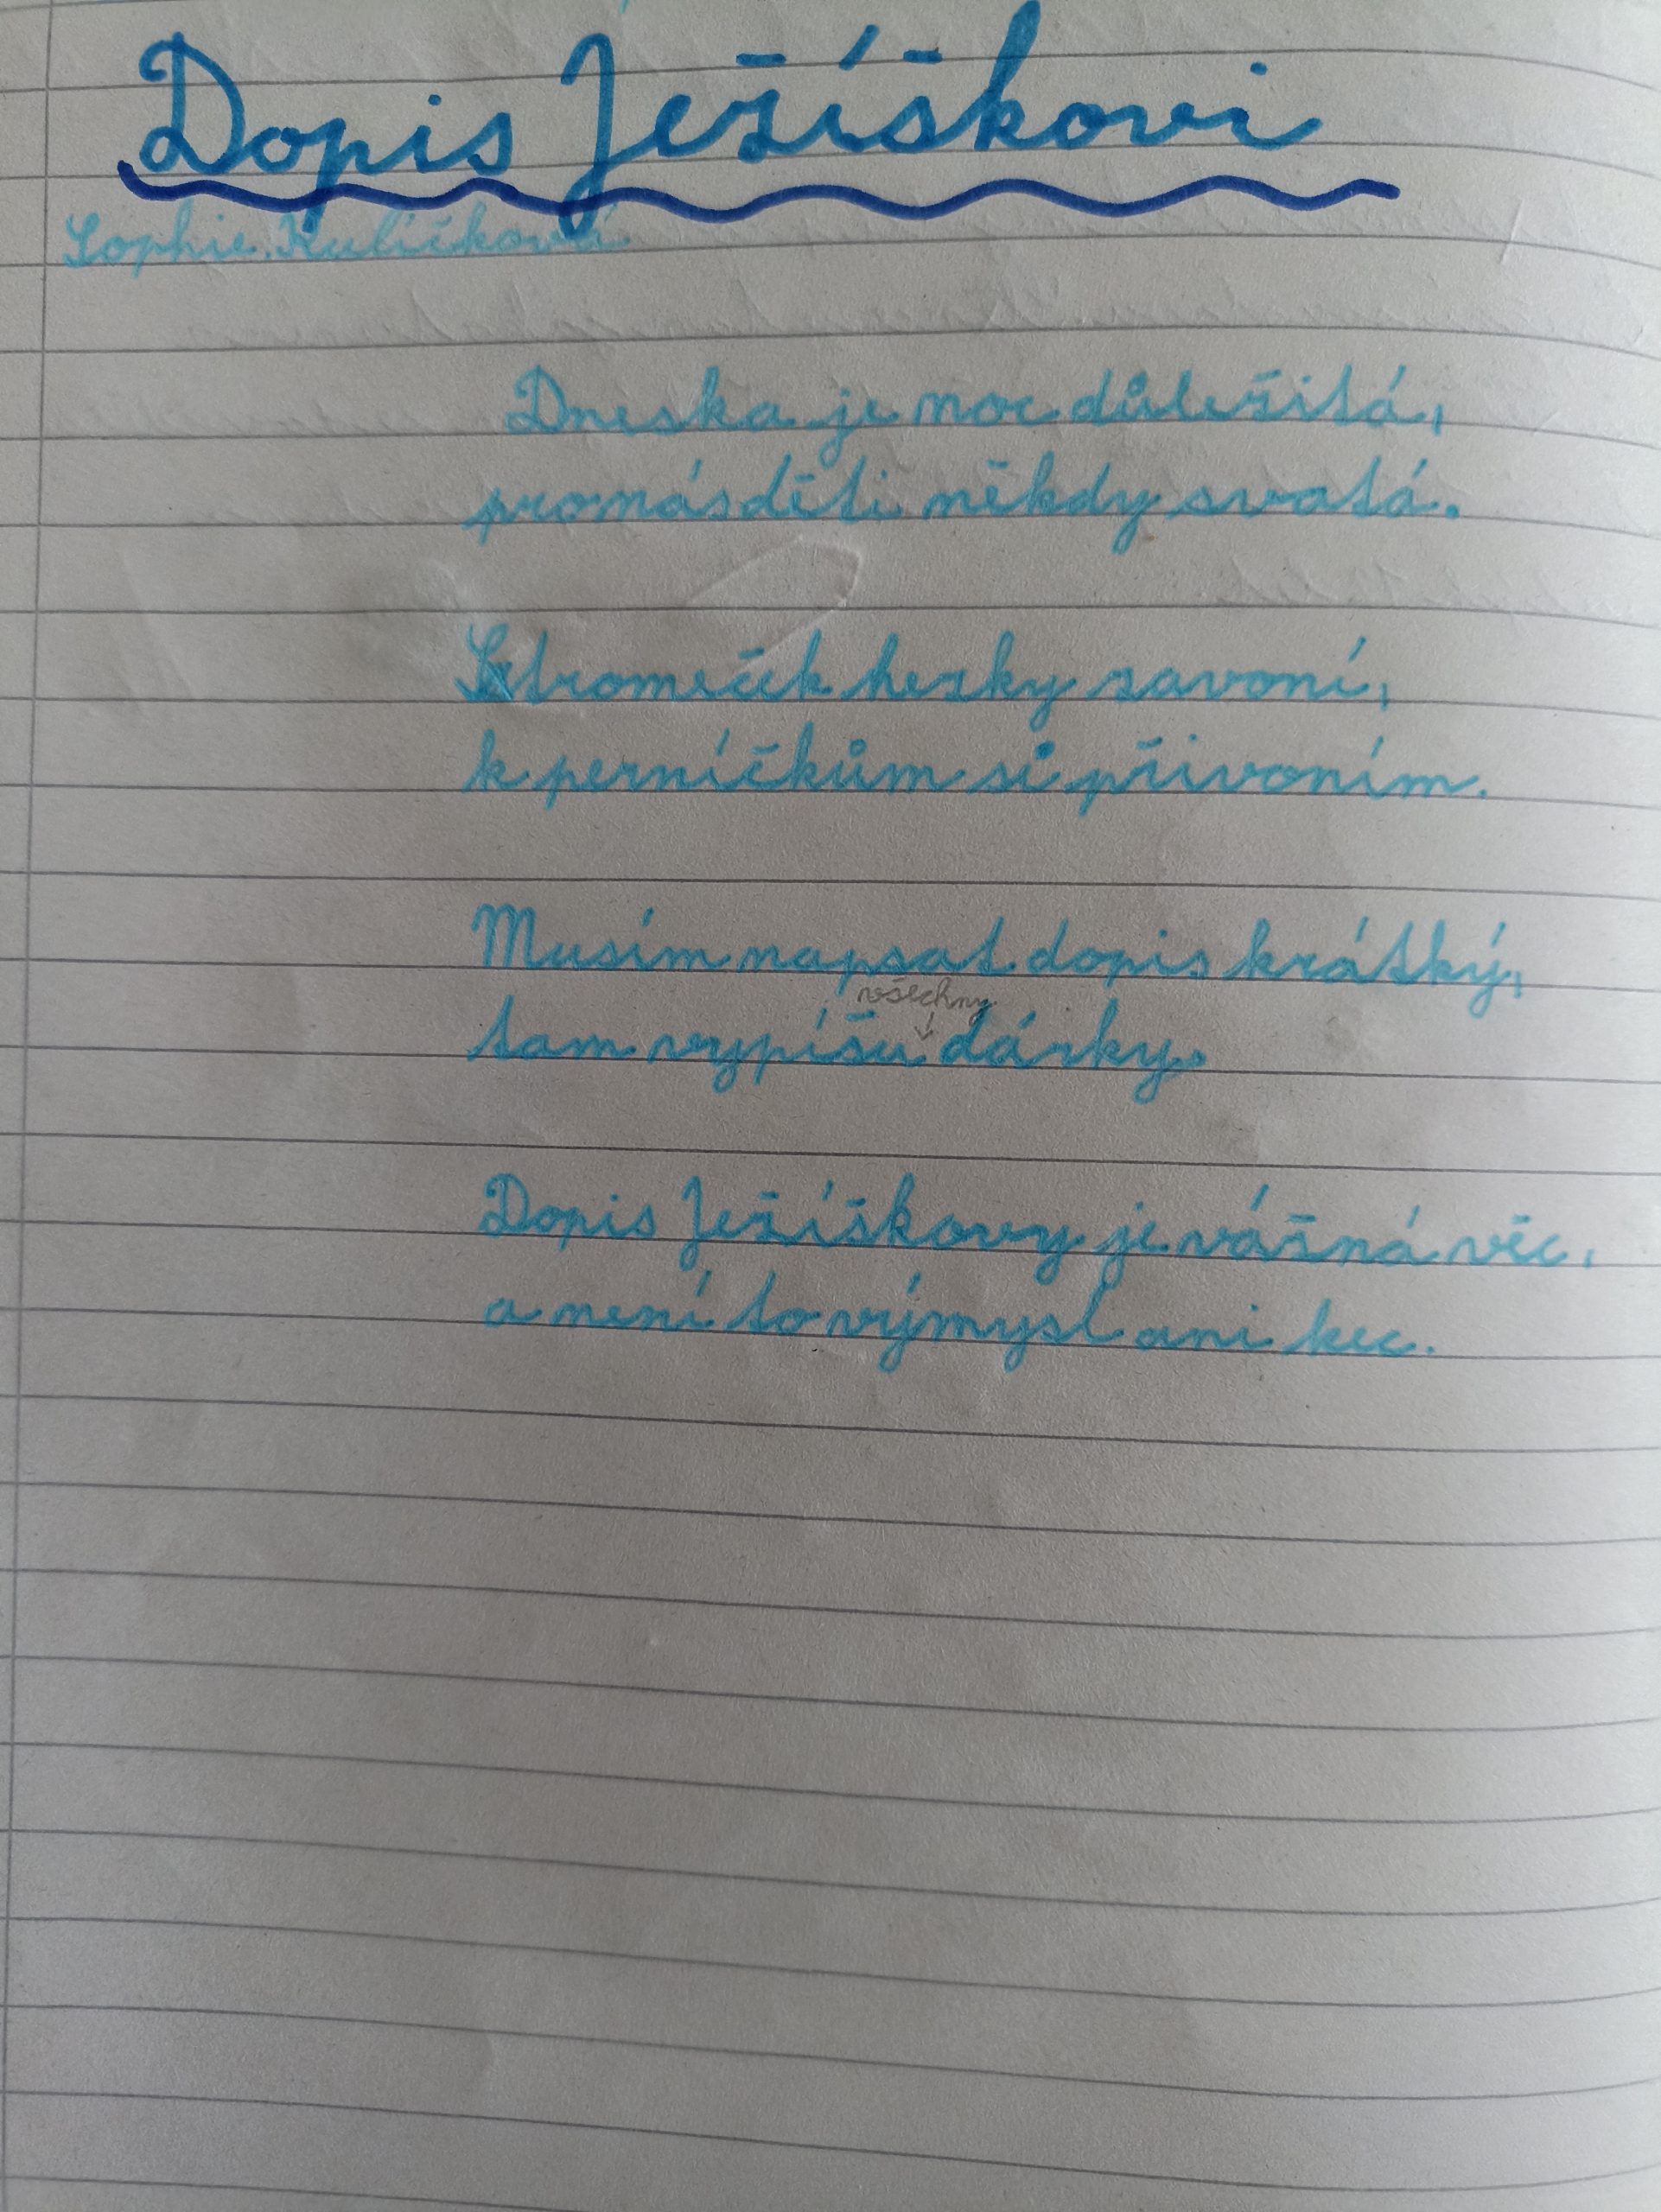 Dopis Ježíškovi
Sophie Kuličková
Dneska je noc důležitá,
pro nás děti někdy svatá.
Stromeček hezky zavoní,
k perníčkům si přivoním.
Musím napsat dopis krátký,
všechny
tam vypíšu dárky.
Dopis Ježíškovy je vážná věc,
a není to výmysl ani kec.